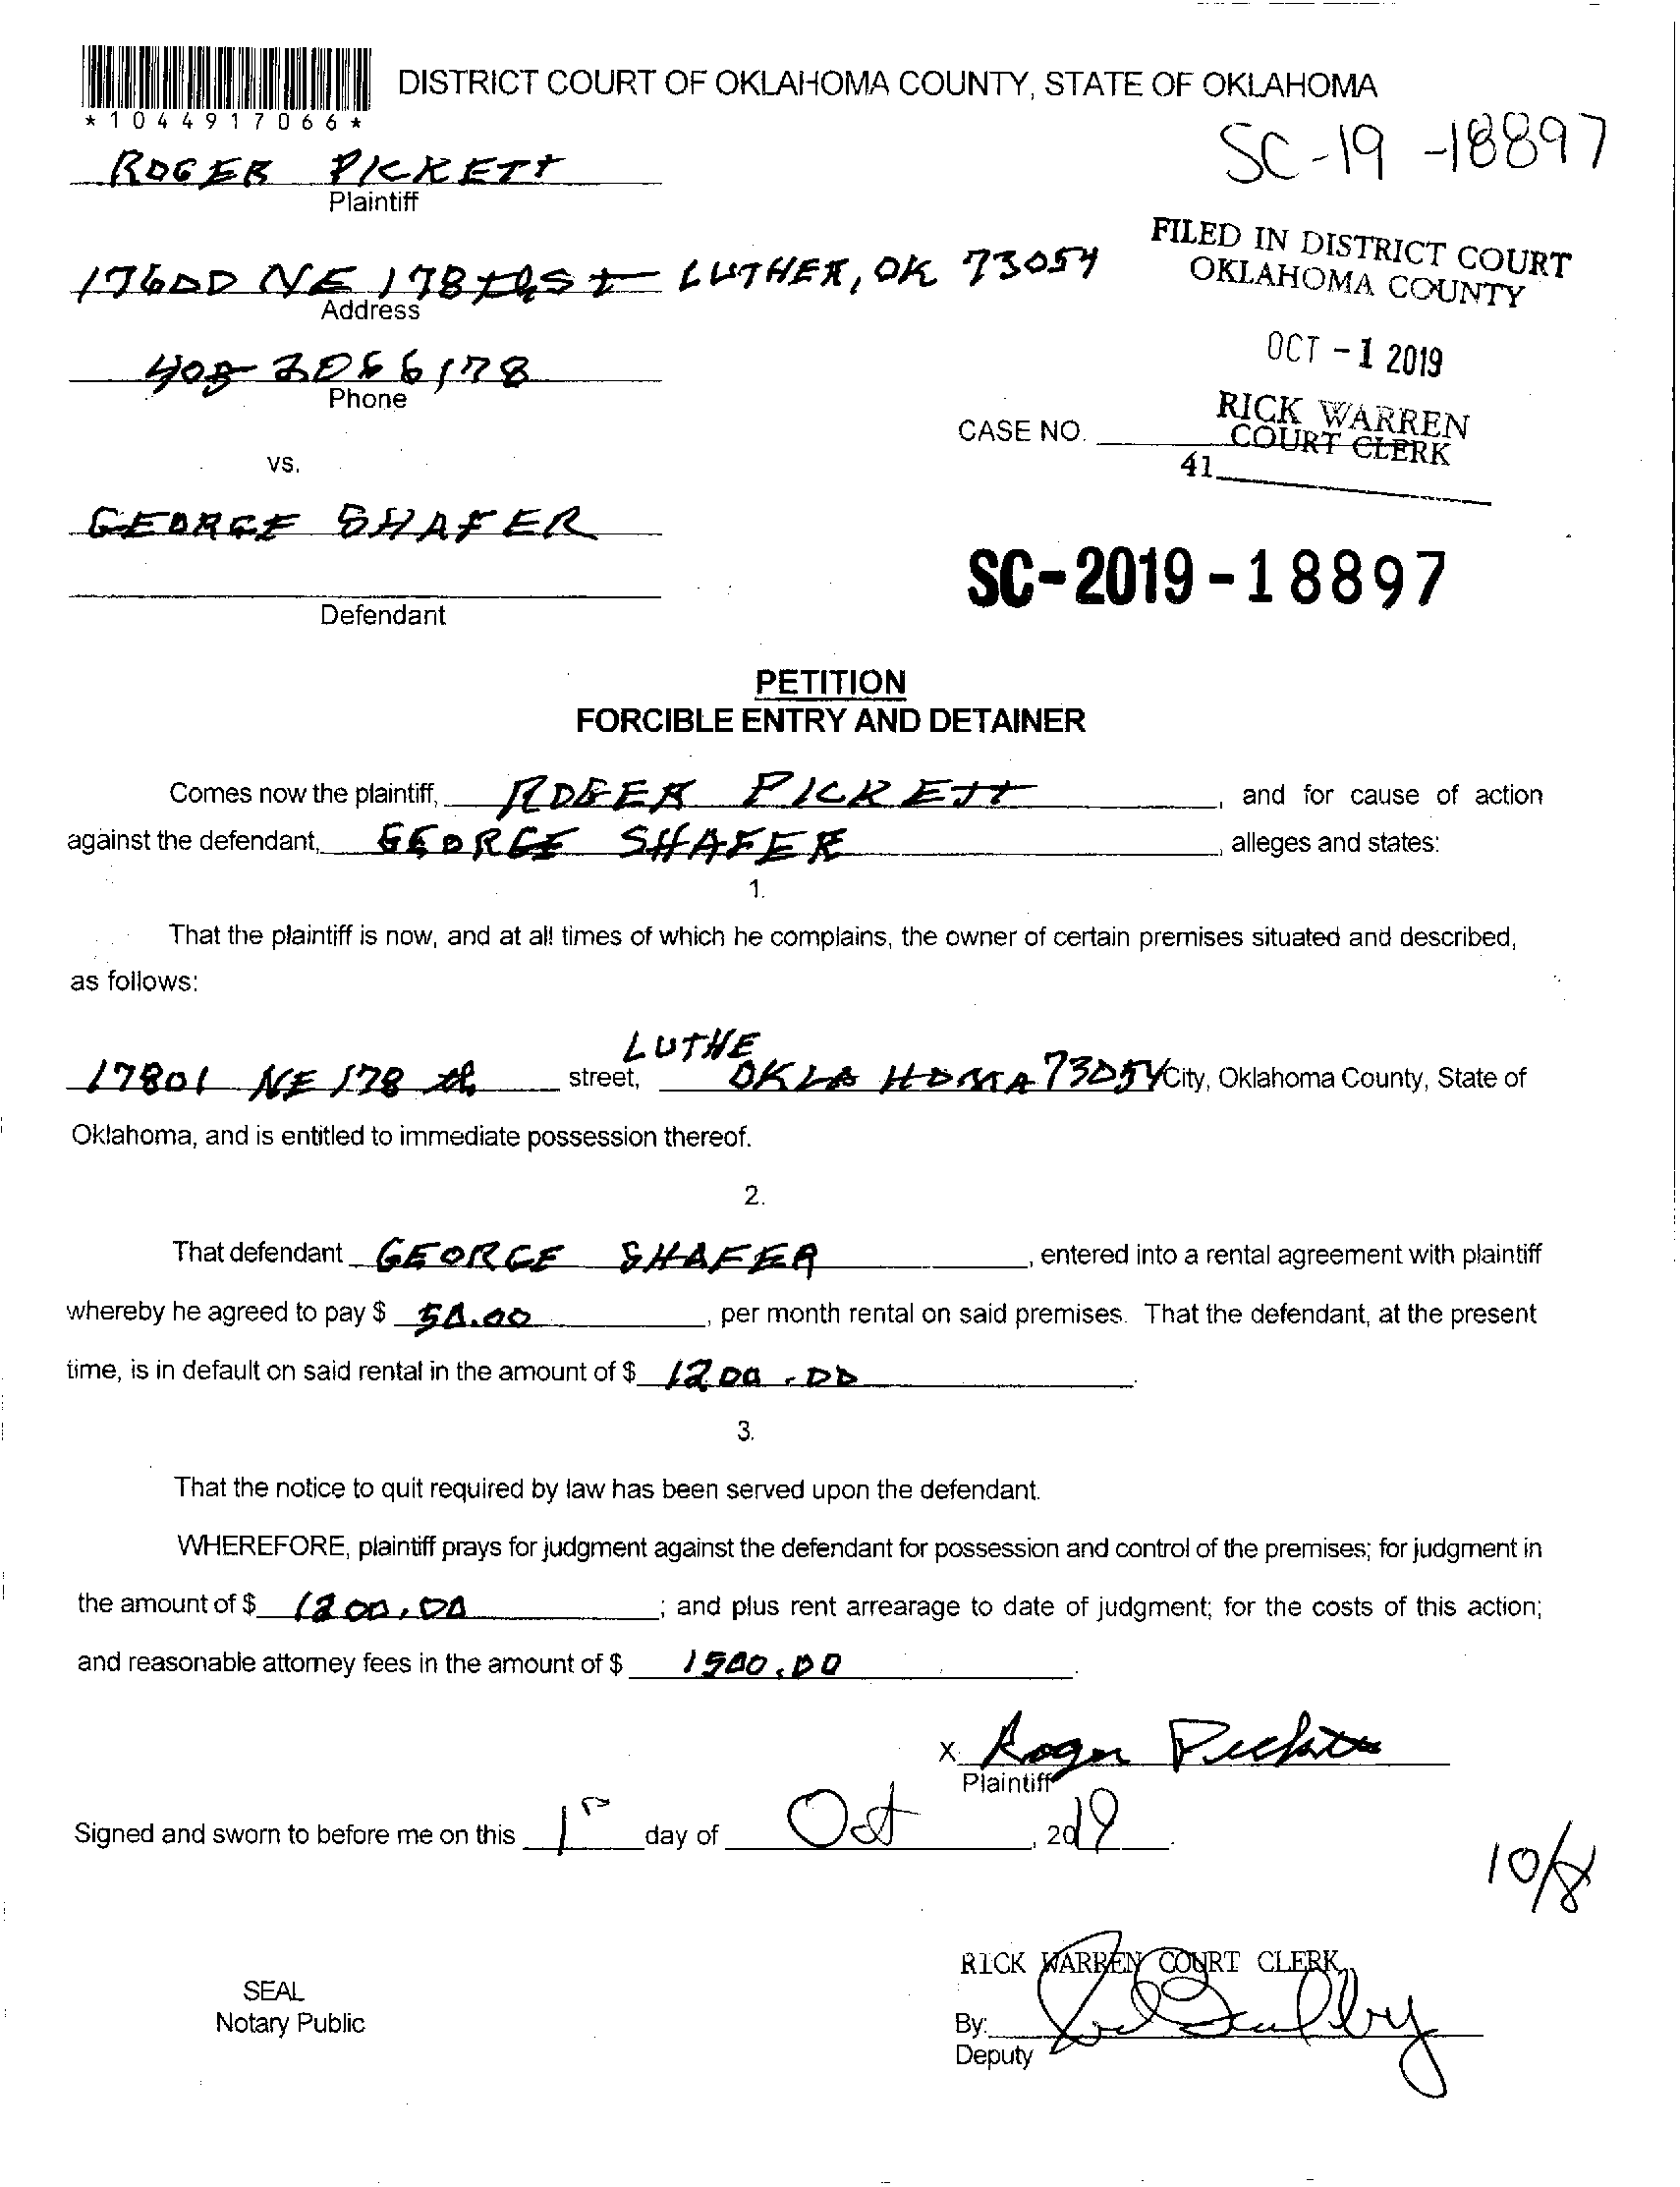 DISTRICT COURT OF OKLAHOMA COUNTY, STATE OF OKLAHOMA
*1044917066*
SC-19-18897
ROGER PICKETT
Plaintiff
FILED IN DISTRICT COURT
OKLAHOMA COUNTY
17600 NE 178th St LUTHER, OK 73054
Address
OCT -1 2019
Phone
RICK WARREN
COURT CLERK
CASE NO.
41
vs.
GEORGE SHAFER
SC-2019-18897
Defendant
PETITION
FORCIBLE ENTRY AND DETAINER
Comes now the plaintiff, ROGER PICKETT, and for cause of action
against the defendant, GEORGE SHAFER, alleges and states:
1.
That the plaintiff is now, and at all times of which he complains, the owner of certain premises situated and described,
as follows:
LUTHE
17801 NE 178 th street, OKLAHOMA 73054 City, Oklahoma County, State of
Oklahoma, and is entitled to immediate possession thereof.
2.
That defendant GEORGE SHAFER, entered into a rental agreement with plaintiff
whereby he agreed to pay $ 50.00, per month rental on said premises. That the defendant, at the present
time, is in default on said rental in the amount of $ 1200.00.
3.
That the notice to quit required by law has been served upon the defendant.
WHEREFORE, plaintiff prays for judgment against the defendant for possession and control of the premises; for judgment in
the amount of $ 1200.00; and plus rent arrearage to date of judgment; for the costs of this action;
and reasonable attorney fees in the amount of $ 1500.00.
X Roger Pickett
Plaintiff
Signed and sworn to before me on this 1st day of Oct, 2019.
10/8
RICK WARREN COURT CLERK
SEAL
Notary Public
By:
Deputy